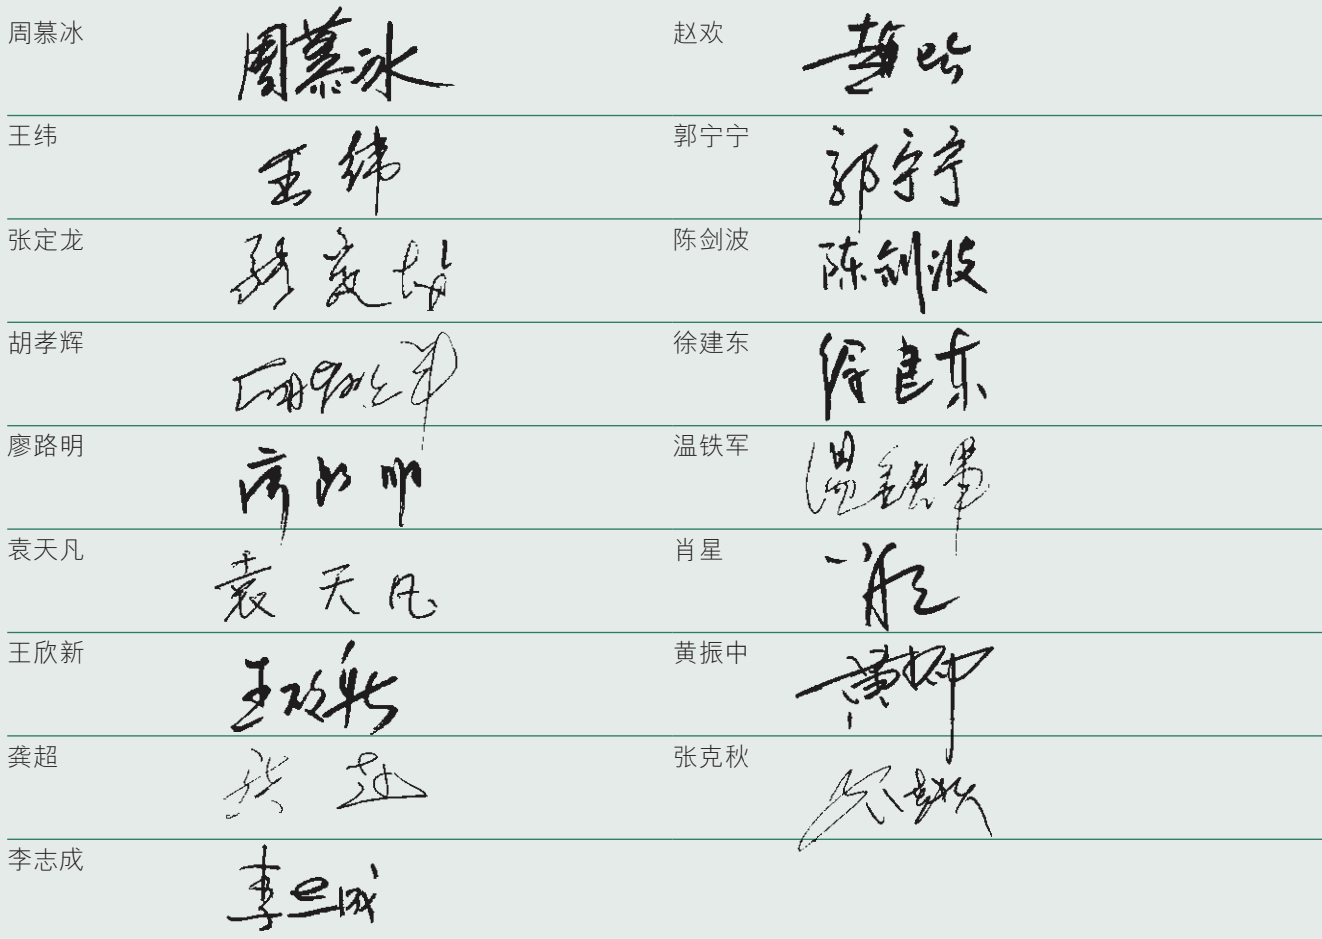 周慕冰 周慕冰 赵欢 赵欢
王纬 王纬 郭宁宁 郭宁宁
张定龙 张定龙 陈剑波 陈剑波
胡孝辉 胡孝辉 徐建东 徐建东
廖路明 廖路明 温铁军 温铁军
袁天凡 袁天凡 肖星 肖星
王欣新 王欣新 黄振中 黄振中
龚超 龚超 张克秋 张克秋
李志成 李志成